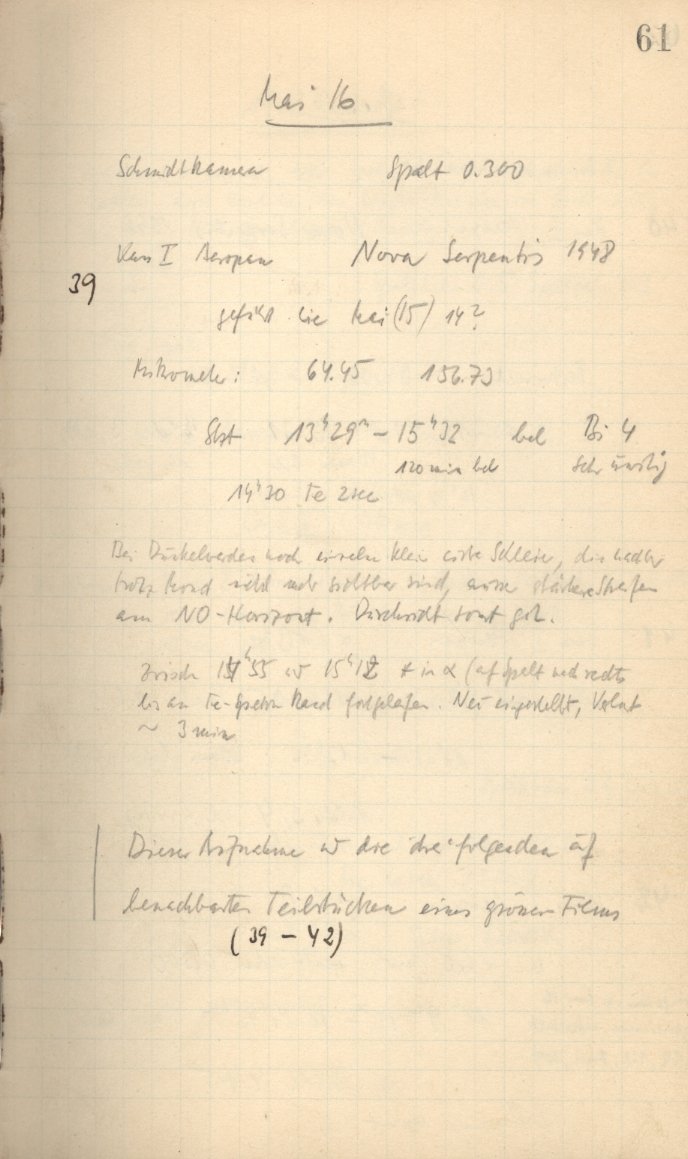 61
Mai 16.
Schmidtkamera Spalt 0.300
Kass I Aeropan Nova Serpentis 1948
39
geführt wie Mai (15) 14?
Mikrometer: 64.45 156.73
Sbst 13h29m – 15h32 bel Bi 4
120 min bel Sehr unruhig
14h30 Te 2sec
Bei Dunkelwerden noch einzelne kleine Schleier, die
trotz Mond nicht mehr sichtbar sind, ausser stärkere Streifen
am NO-Horizont. Durchsicht sonst gut.
14h55 15h12 * in α (auf Spalt nach rechts
bis an Rand fortgelaufen. Neu eingestellt, Verlust
~ 3 min
Diese Aufnahme u die drei folgenden auf
benachbarten Teilstücken eines grösseren Films
(39 – 42)